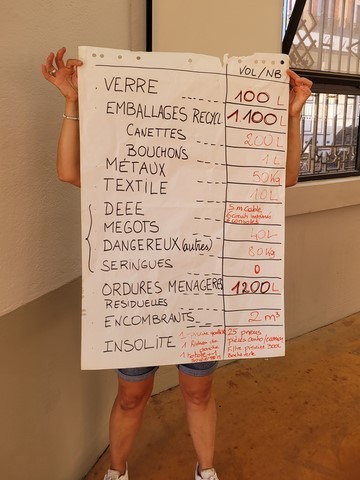 VOL/NB
VERRE 100 L
EMBALLAGES RECYCL 1100 L
CANETTES 200 L
BOUCHONS 1 L
MÉTAUX 50 kg
TEXTILE 10 L
DEEE 5m Cable
MEGOTS 40 L
DANGEREUX (autres) 80 kg
SERINGUES 0
ORDURES MENAGERES 1200 L
RESIDUELLES
ENCOMBRANTS 2 m³
INSOLITE 25 pneus